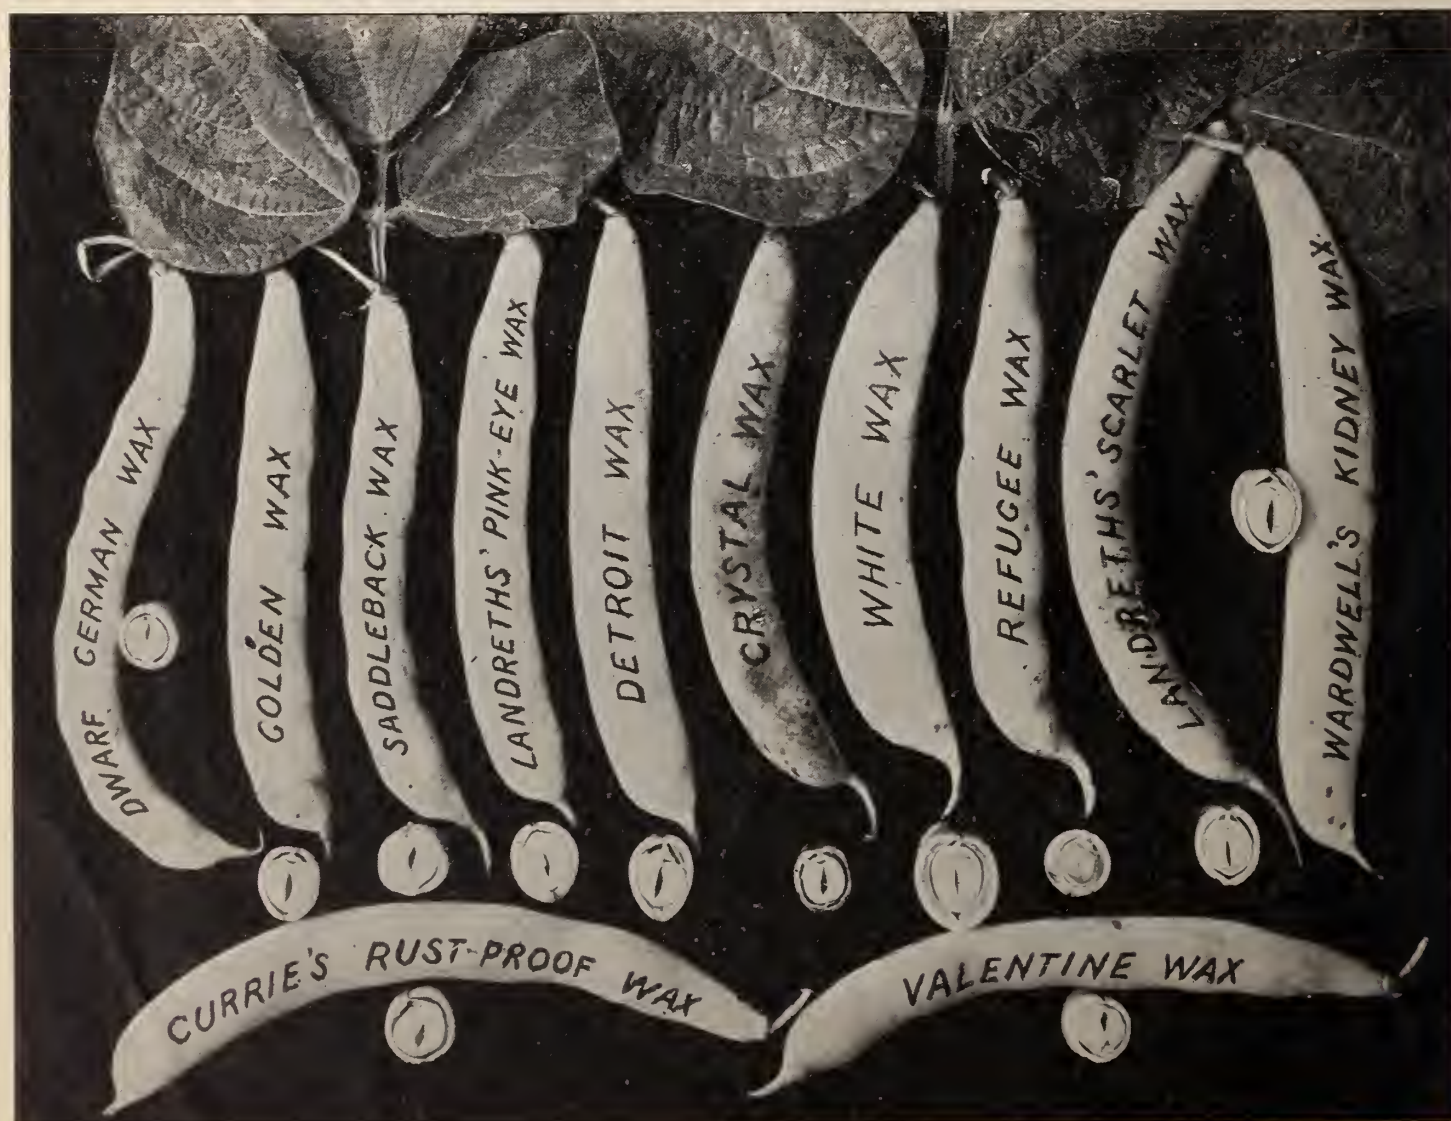 DWARF GERMAN WAX
GOLDEN WAX
SADDLEBACK WAX
LANDRETHS' PINK-EYE WAX
DETROIT WAX
CRYSTAL WAX
WHITE WAX
REFUGEE WAX
LANDRETHS' SCARLET WAX
WARDWELL'S KIDNEY WAX
CURRIE'S RUST-PROOF WAX
VALENTINE WAX